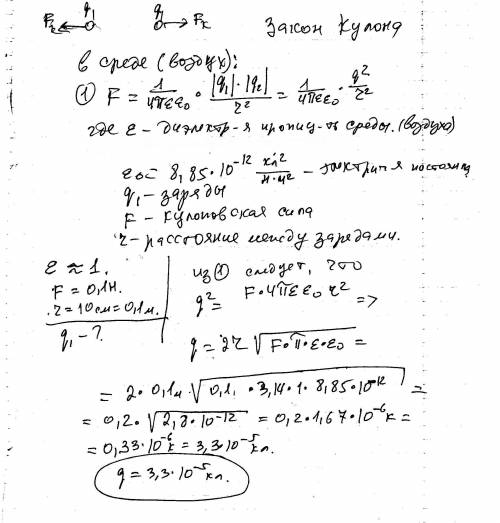 Fк q₁ q Fк Закон Кулона
в среде (воздух):
① F = 1/4πεε₀ · |q₁|·|q₂|/r² = 1/4πεε₀ · q²/r²
где ε – диэлектр-я прониц-ть среды. (воздух)
ε₀ = 8,85·10⁻¹² Кл²/Н·м² – электрич-я постоянная
q₁ – заряды
F – кулоновская сила
r – расстояние между зарядами.
ε ≈ 1.
F = 0,1Н.
r = 10см = 0,1м.
q₁ – ?
из ① следует, что
q² = F·4πεε₀ r² =>
q = 2r √F·π·ε·ε₀ =
= 2·0,1м √0,1·3,14·1·8,85·10⁻¹² =
= 0,2·√2,8·10⁻¹² = 0,2·1,67·10⁻⁶к =
= 0,33·10⁻⁶к = 3,3·10⁻⁵кл.
q = 3,3·10⁻⁵кл.